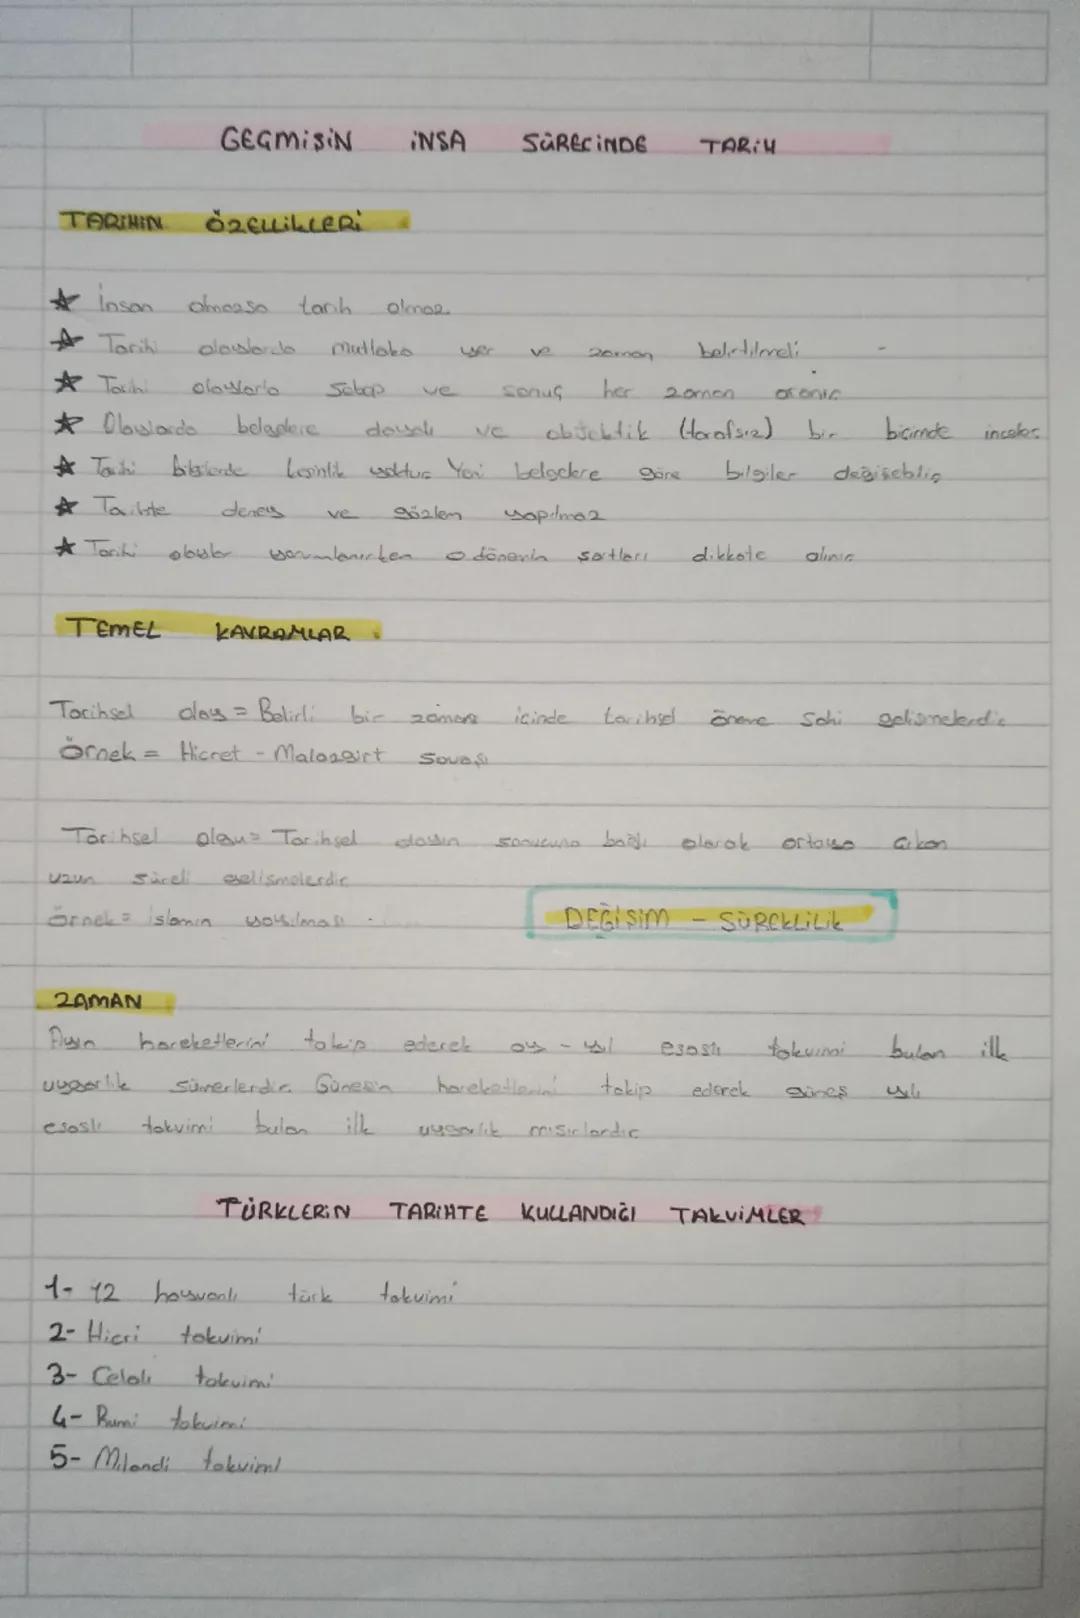 GEÇMİŞİN İNŞA SÜRECİNDE TARİH
TARİHİN ÖZELLİKLERİ
☆ İnsan olmazsa tarih olmaz.
☆ Tarihi olaylarda mutlaka yer ve zaman belirtilmeli
☆ Tarihi olaylarla sebep ve sonuç her zaman aranır
☆ Olaylarda belgelere dayalı ve objektik (tarafsız) bir biçimde inceler.
☆ Tarihi bilgilerde kesinlik yoktur. Yeni belgelere göre bilgiler değişebilir
☆ Tarihte deney ve gözlem yapılmaz
☆ Tarihi olaylar yorumlanırken o dönemin şartları dikkate alınır
TEMEL KAVRAMLAR
Tarihsel olay = Belirli bir zaman içinde tarihsel öneme sahi gelişmelerdir
Örnek = Hicret - Malazgirt Savaşı
Tarihsel olgu = Tarihsel olayın sonucuna bağlı olarak ortaya çıkan
uzun süreli gelişmelerdir
Örnek = islamın yayılması
DEĞİŞİM - SÜREKLİLİK
ZAMAN
Ayın hareketlerini takip ederek ay - yıl esaslı takvimi bulan ilk
uygarlık sümerlerdir. Güneşin hareketlerini takip ederek güneş yılı
esaslı takvimi bulan ilk uygarlık mısırlardır
TÜRKLERİN TARİHTE KULLANDIĞI TAKVİMLER
1- 12 hayvanlı türk takvimi
2- Hicri takvimi
3- Celali takvimi
4- Rumi takvimi
5- Milandi takvimi